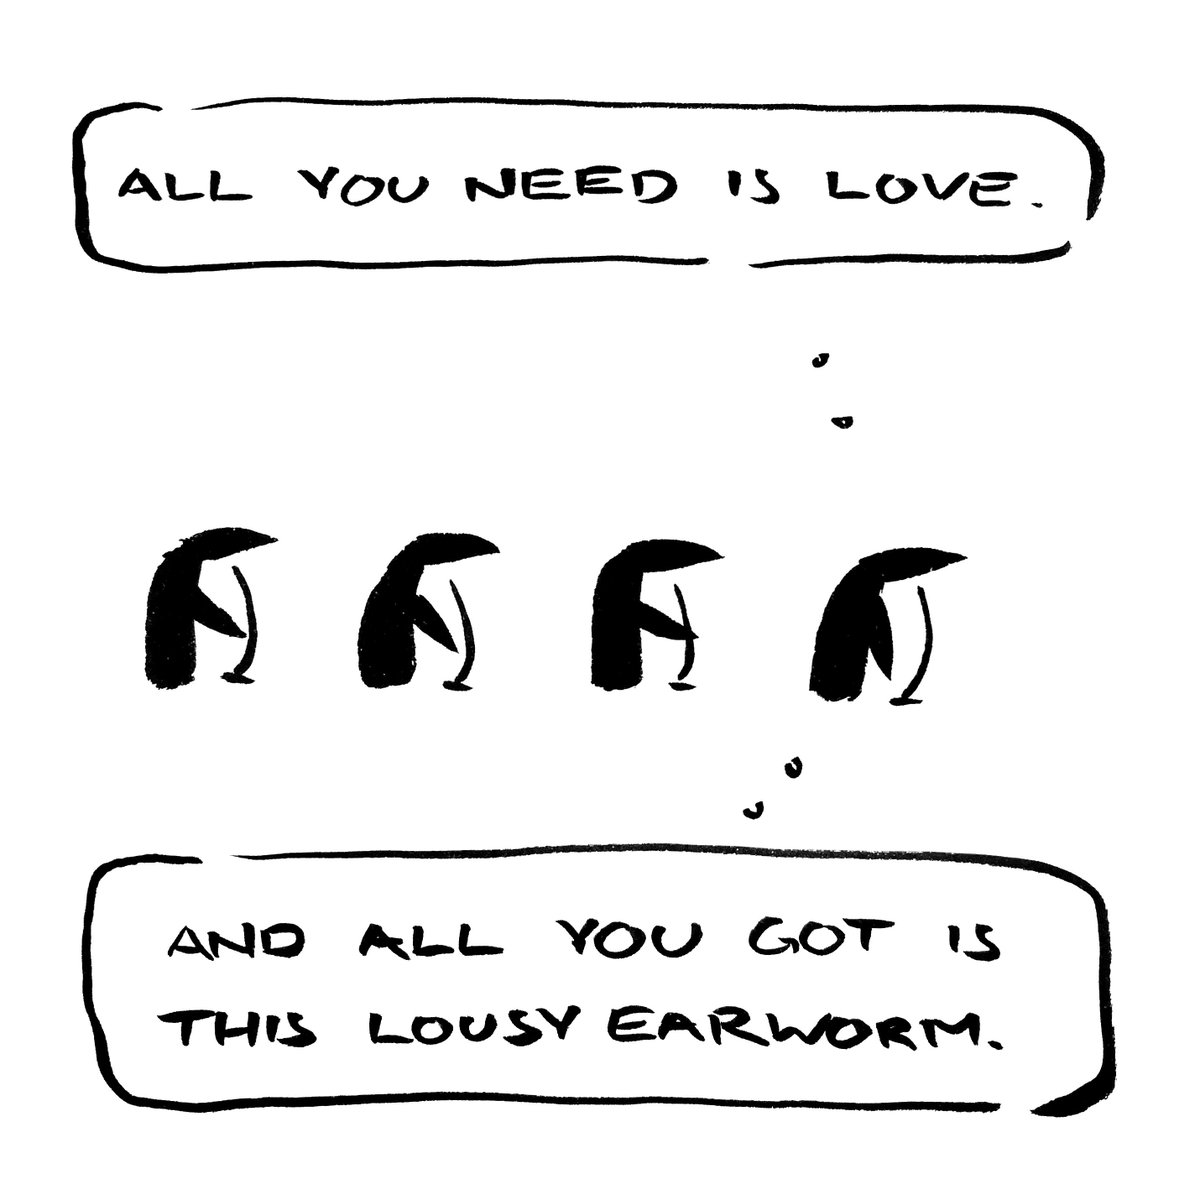 ALL YOU NEED IS LOVE.
AND ALL YOU GOT IS
THIS LOUSY EARWORM.